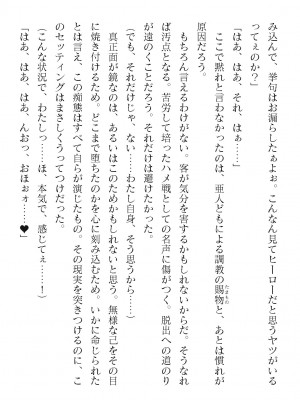 み込んで、挙句はお漏らしたぁよぉ。こんなん見てヒーローだと思うヤツがいる
ってぇのか？」
「はあ、はあ、それ、はぁ……」
ここで黙れと言わなかったのは、亜人どもによる調教の賜物と、あとは慣れが
原因だろう。
もちろん言えるわけがない。客が気分を害するかもしれないからだ。そうなれ
ば汚点となる。苦労して培ったハメ戦としての名声に傷がつく。脱出への道のり
が遠のくことだろう。それだけは避けたかった。
（でも、それだけじゃ、ない……わたし自身、そう思うから……）
真正面が鏡なのは、あるいはこのためかもしれないと思う。無様な己をその目
に焼き付けるため。どこまで堕ちたのかを心に刻み込むため。いかに命じられた
とは言え、この痴態はすべて自らが演じたもの。その現実を突きつけるのに、こ
のセッティングはまさしくうってつけだった。
（こんな状況で、わたしっ……ほ、本気で、感じてぇ……！）
「はあ、はあ、はあ、んおっ、おほぉォ……♥」